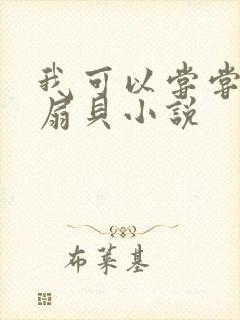 我可以尝尝
扇貝小説
布莱基